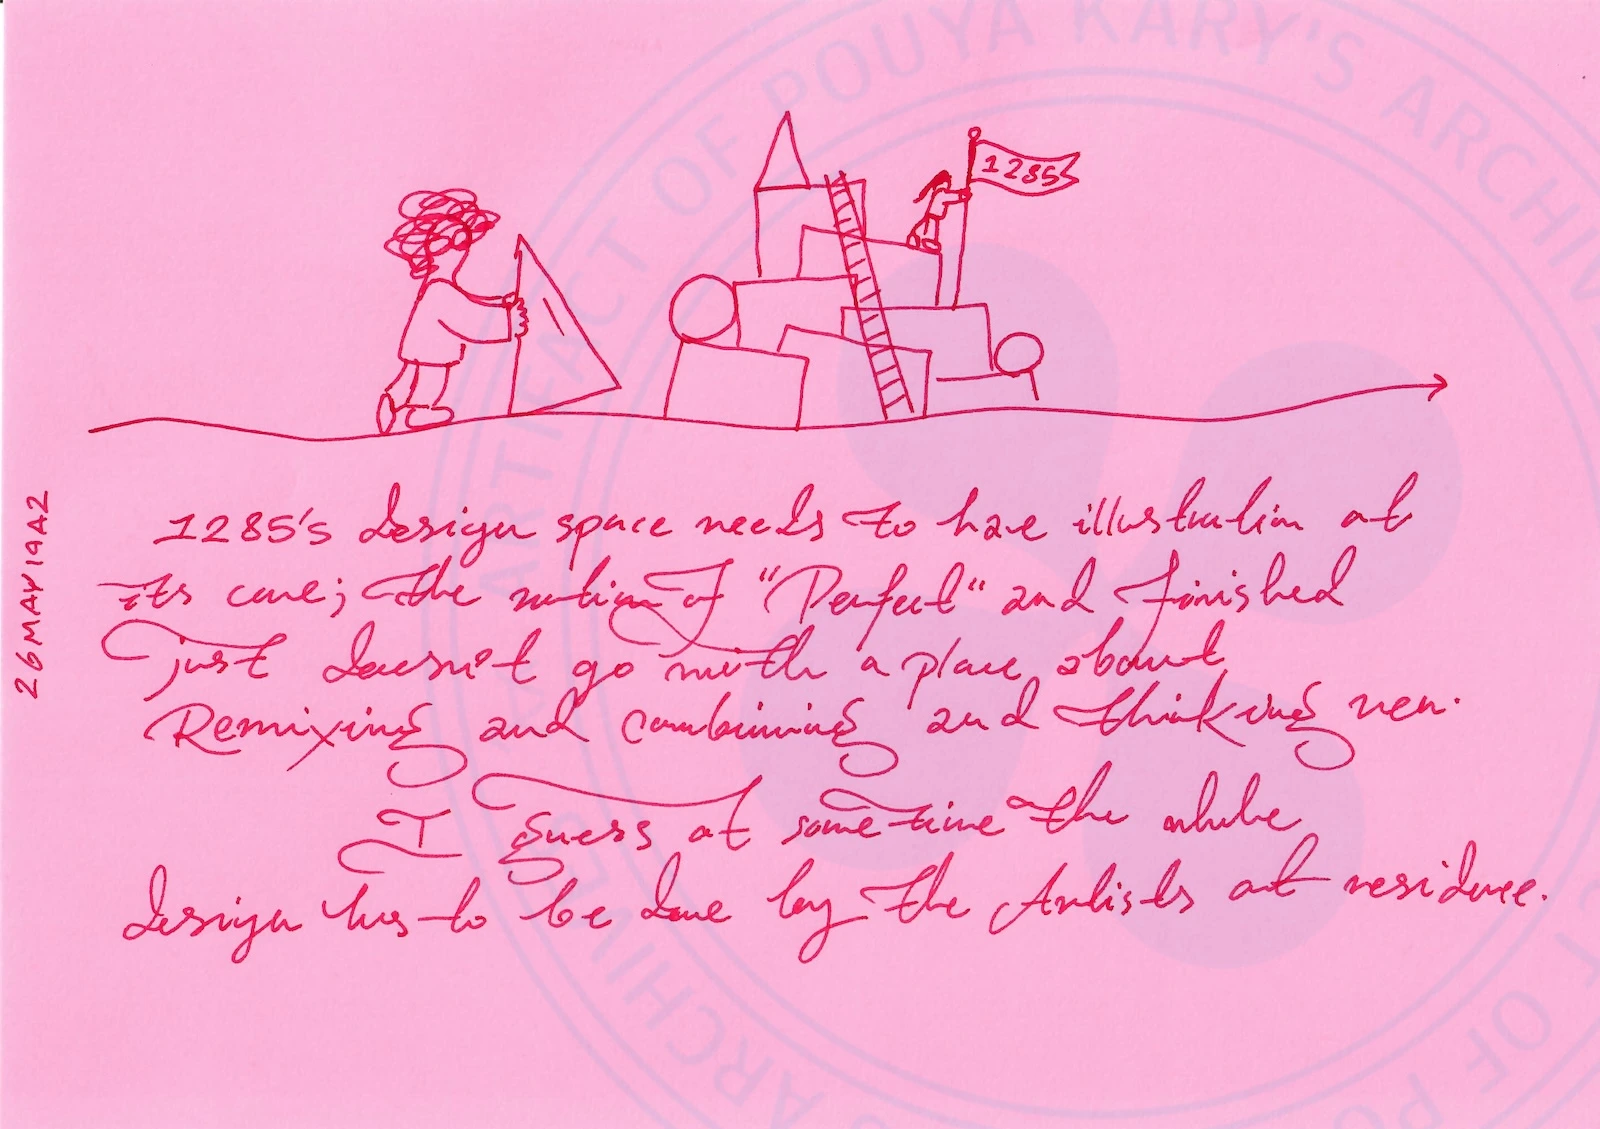 1285
1285's design space needs to have illustration at
its core; the notion of "Perfect" and finished
just doesn't go with a place about
Remixing and combining and thinking new.
I guess at some time the whole
design has to be done by the Artists at residence.
26MAY19A2
ARTIFACT OF POUYA KARY'S ARCHIVES